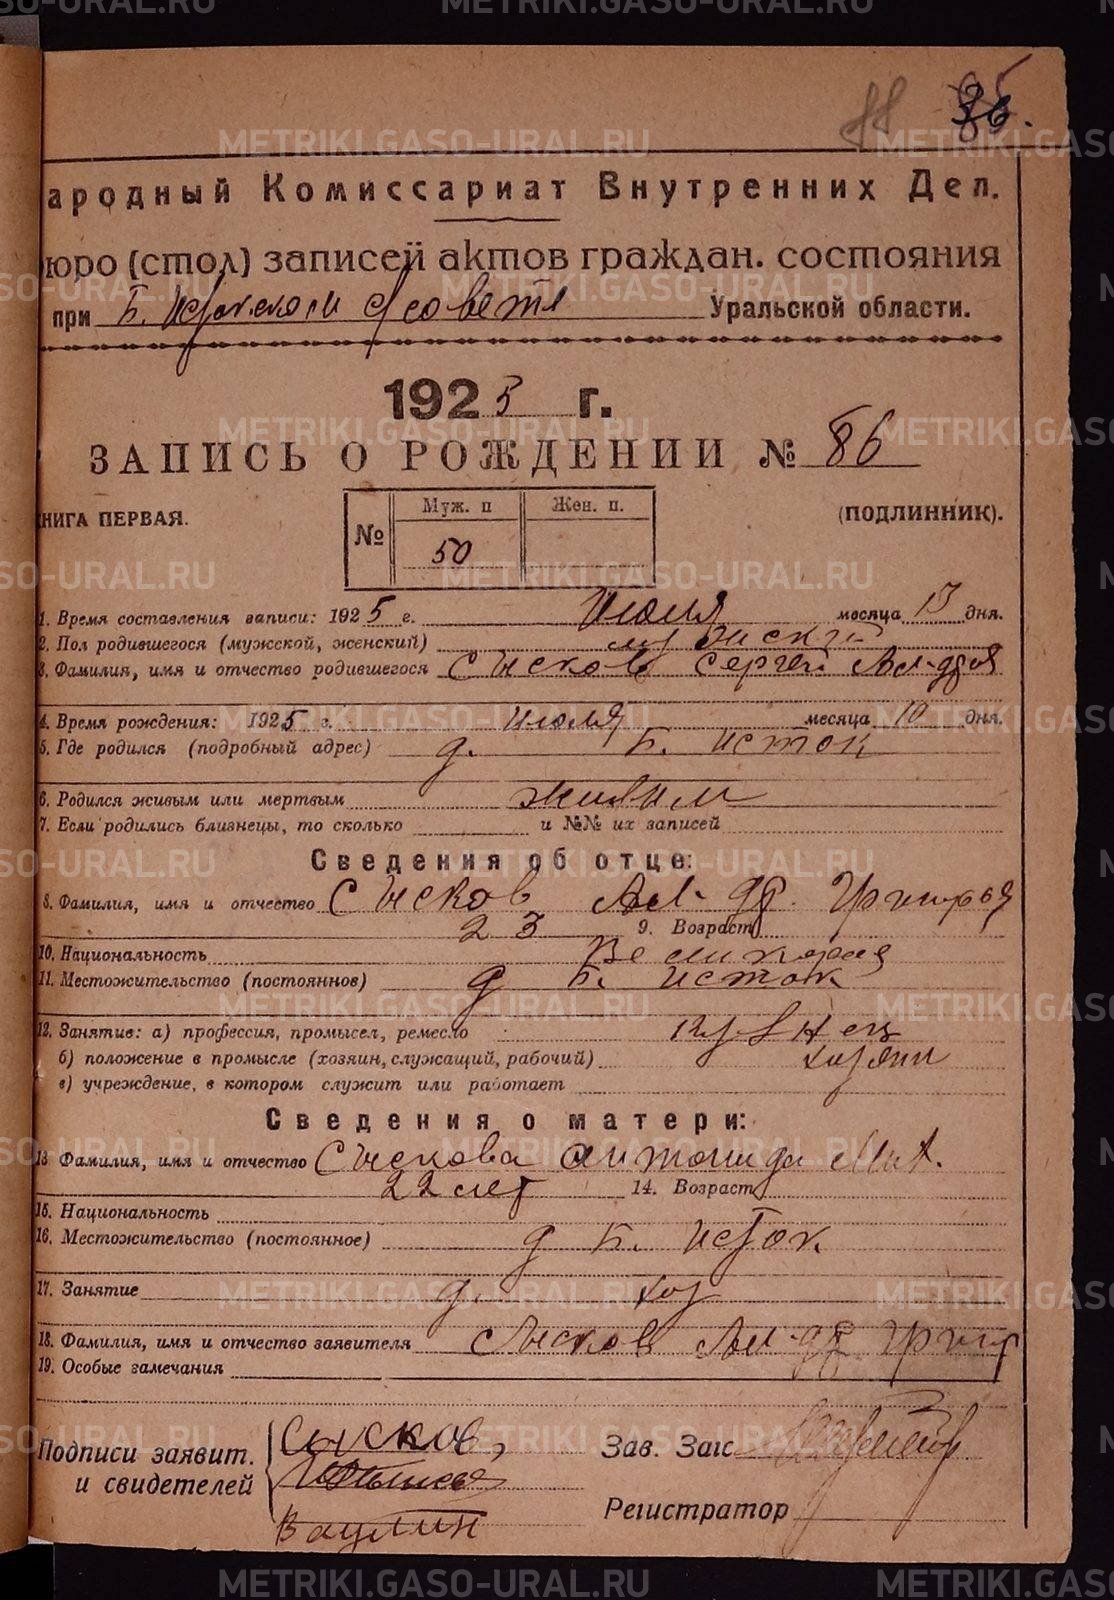 METRIKI.GASO-URAL.RU
86.
ародный Комиссариат Внутренних Дел.
юро (стол) записей актов граждан. состояния
при Б. Истокском Совете Уральской области.
1925 г.
ЗАПИСЬ О РОЖДЕНИИ № 86
НИГА ПЕРВАЯ.
(ПОДЛИННИК).
№ Муж. п Жен. п.
50
1. Время составления записи: 1925 г. Июля месяца 13 дня.
2. Пол родившегося (мужской, женский) мужской
3. Фамилия, имя и отчество родившегося Сысков Сергей Ал-др
4. Время рождения: 1925 г. июля месяца 10 дня.
5. Где родился (подробный адрес) д. Б. исток
6. Родился живым или мертвым живым
7. Если родились близнецы, то сколько и №№ их записей
Сведения об отце:
8. Фамилия, имя и отчество Сысков Ал-др. Григорья
23 9. Возраст
10. Национальность Великоросс
11. Местожительство (постоянное) д Б. исток
12. Занятие: а) профессия, промысел, ремесло кузнец
б) положение в промысле (хозяин, служащий, рабочий) хозяин
в) учреждение, в котором служит или работает
Сведения о матери:
13 Фамилия, имя и отчество Сыскова антонида Мих.
22 лет 14. Возраст
15. Национальность
16. Местожительство (постоянное) д Б. исток.
17. Занятие д. хоз
18. Фамилия, имя и отчество заявителя Сысков Ал-др Григ
19. Особые замечания
Подписи заявит. и свидетелей
Сысков,
Ваулин
Зав. Загс
Регистратор